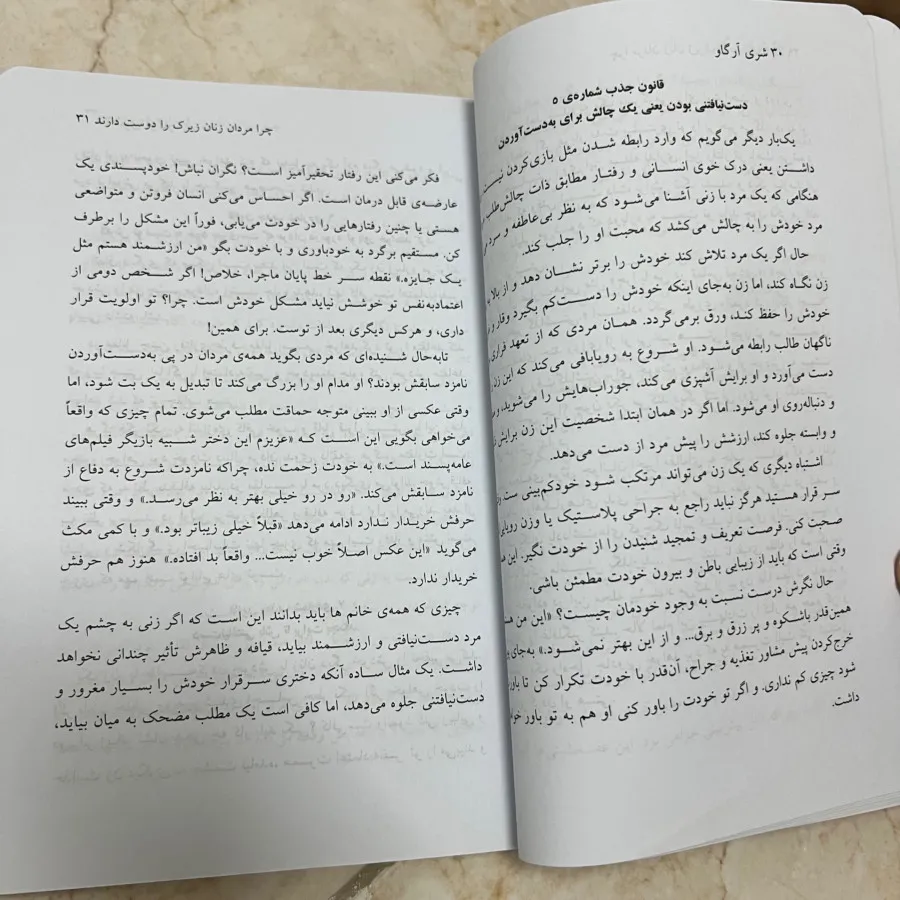 ۳۰ شری آرگاو
قانون جذب شماره‌ی ۵
دست‌نیافتنی بودن یعنی یک چالش برای به‌دست‌آوردن
یک‌بار دیگر می‌گویم که وارد رابطه شدن مثل بازی‌کردن نیست
داشتن یعنی درک خوی انسانی و رفتار مطابق ذات چالش‌طلب
هنگامی که یک مرد با زنی آشنا می‌شود که به نظر بی‌عاطفه و سرد
مرد خودش را به چالش می‌کشد که محبت او را جلب کند.
حال اگر یک مرد تلاش کند خودش را برتر نشان دهد و از بالا
زن نگاه کند، اما زن به‌جای اینکه خودش را دست‌کم بگیرد وقار و
خودش را حفظ کند، ورق برمی‌گردد. همان مردی که از تعهد فراری
ناگهان طالب رابطه می‌شود. او شروع به رویابافی می‌کند که این زن
دست می‌آورد و او برایش آشپزی می‌کند، جوراب‌هایش را می‌شوید،
و دنباله‌روی او می‌شود. اما اگر در همان ابتدا شخصیت این زن برایش
و وابسته جلوه کند، ارزشش را پیش مرد از دست می‌دهد.
اشتباه دیگری که یک زن می‌تواند مرتکب شود خودکم‌بینی ست
سر قرار هستید هرگز نباید راجع به جراحی پلاستیک یا وزن رویایی
صحبت کنی. فرصت تعریف و تمجید شنیدن را از خودت نگیر. این
وقتی است که باید از زیبایی باطن و بیرون خودت مطمئن باشی.
حال نگرش درست نسبت به وجود خودمان چیست؟ «این من
همین‌قدر باشکوه و پر زرق و برق... و از این بهتر نمی‌شود.» به‌جای
خرج‌کردن پیش مشاور تغذیه و جراح، آن‌قدر با خودت تکرار کن تا
شود چیزی کم نداری. و اگر تو خودت را باور کنی او هم به تو باور
داشت.
چرا مردان زنان زیرک را دوست دارند ۳۱
فکر می‌کنی این رفتار تحقیرآمیز است؟ نگران نباش! خودپسندی یک
عارضه‌ی قابل درمان است. اگر احساس می‌کنی انسان فروتن و متواضعی
هستی یا چنین رفتارهایی را در خودت می‌یابی، فوراً این مشکل را برطرف
کن. مستقیم برگرد به خودباوری و با خودت بگو «من ارزشمند هستم مثل
یک جایزه.» نقطه سر خط پایان ماجرا، خلاص! اگر شخص دومی از
اعتمادبه‌نفس تو خوشش نیاید مشکل خودش است. چرا؟ تو اولویت قرار
داری، و هرکس دیگری بعد از توست. برای همین!
تابه‌حال شنیده‌ای که مردی بگوید همه‌ی مردان در پی به‌دست‌آوردن
نامزد سابقش بودند؟ او مدام او را بزرگ می‌کند تا تبدیل به یک بت شود، اما
وقتی عکسی از او ببینی متوجه حماقت مطلب می‌شوی. تمام چیزی که واقعاً
می‌خواهی بگویی این است که «عزیزم این دختر شبیه بازیگر فیلم‌های
عامه‌پسند است.» به خودت زحمت نده، چراکه نامزدت شروع به دفاع از
نامزد سابقش می‌کند. «رو در رو خیلی بهتر به نظر می‌رسد.» و وقتی ببیند
حرفش خریدار ندارد ادامه می‌دهد «قبلاً خیلی زیباتر بود.» و با کمی مکث
می‌گوید «این عکس اصلاً خوب نیست... واقعاً بد افتاده.» هنوز هم حرفش
خریدار ندارد.
چیزی که همه‌ی خانم ها باید بدانند این است که اگر زنی به چشم یک
مرد دست‌نیافتنی و ارزشمند بیاید، قیافه و ظاهرش تأثیر چندانی نخواهد
داشت. یک مثال ساده آنکه دختری سرقرار خودش را بسیار مغرور و
دست‌نیافتنی جلوه می‌دهد، اما کافی است یک مطلب مضحک به میان بیاید،